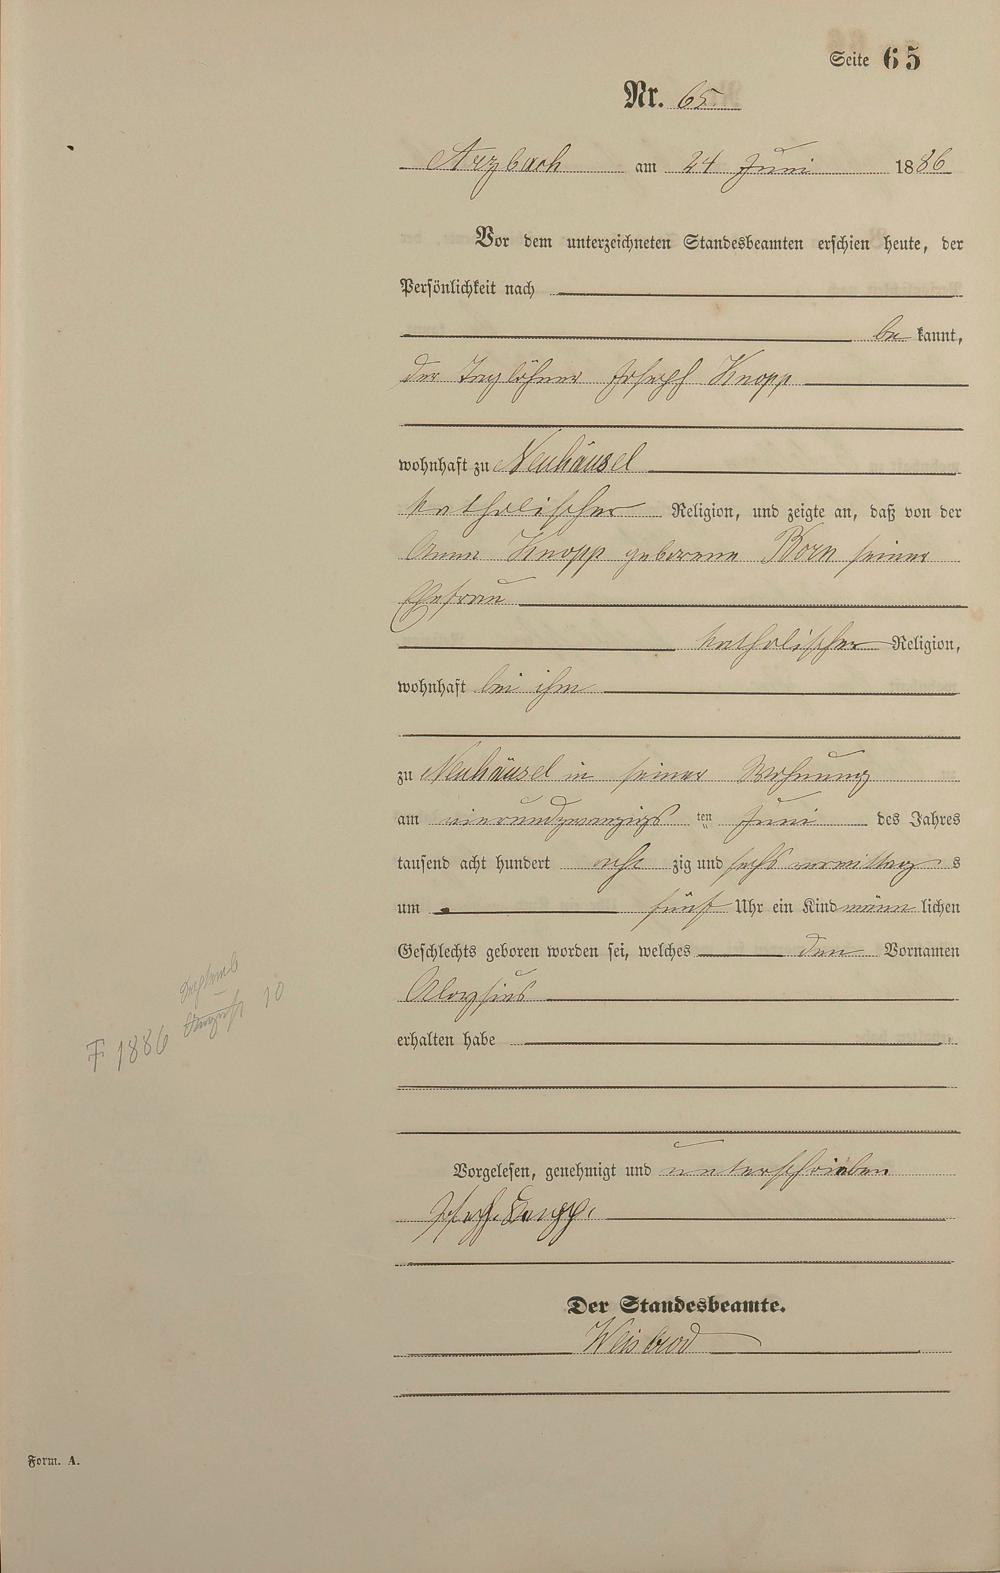 Seite 65
Nr. 65.
Arzbach am 24 Juni 1886
Vor dem unterzeichneten Standesbeamten erschien heute, der
Persönlichkeit nach
be kannt,
der Taglöhner Joseph Knopp
wohnhaft zu Neuhäusel
katholischer Religion, und zeigte an, daß von der
Anna Knopp geborene Born seiner
Ehefrau
katholischer Religion,
wohnhaft bei ihm
zu Neuhäusel in seiner Wohnung
am vierundzwanzigs ten Juni des Jahres
tausend acht hundert acht zig und sechs vormittag s
um fünf Uhr ein Kind männ lichen
Geschlechts geboren worden sei, welches den Vornamen
Aloysius
erhalten habe
F 1886 August 10
Vorgelesen, genehmigt und unterschrieben
Joseph Knopp.
Der Standesbeamte.
Weisbrod
Form. A.